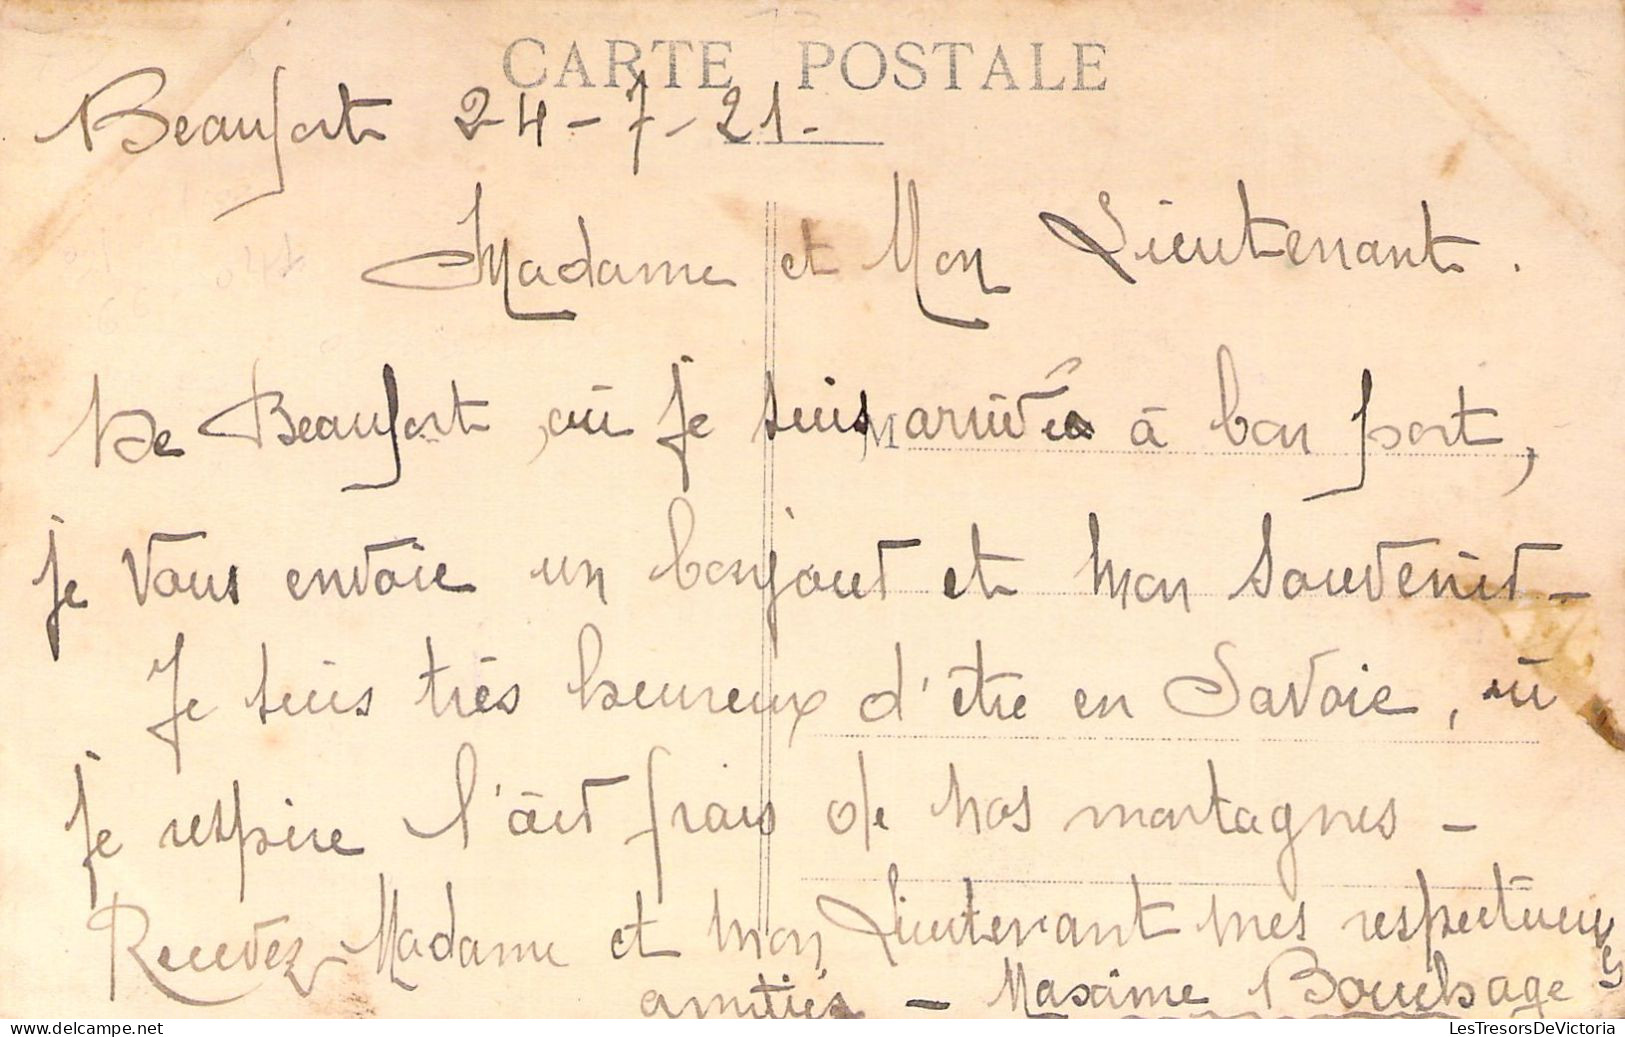 CARTE POSTALE
Beaufort 24-7-21.
Madame et Mon Lieutenant.
De Beaufort, où je suis arrivé à bon port,
je vous envoie un bonjour et mon souvenir-
Je suis très heureux d'être en Savoie, où
je respire l'air frais de nos montagnes -
Recevez Madame et mon Lieutenant mes respectueuses
amitiés - Maxime Bouchage
LesTresorsDeVictoria